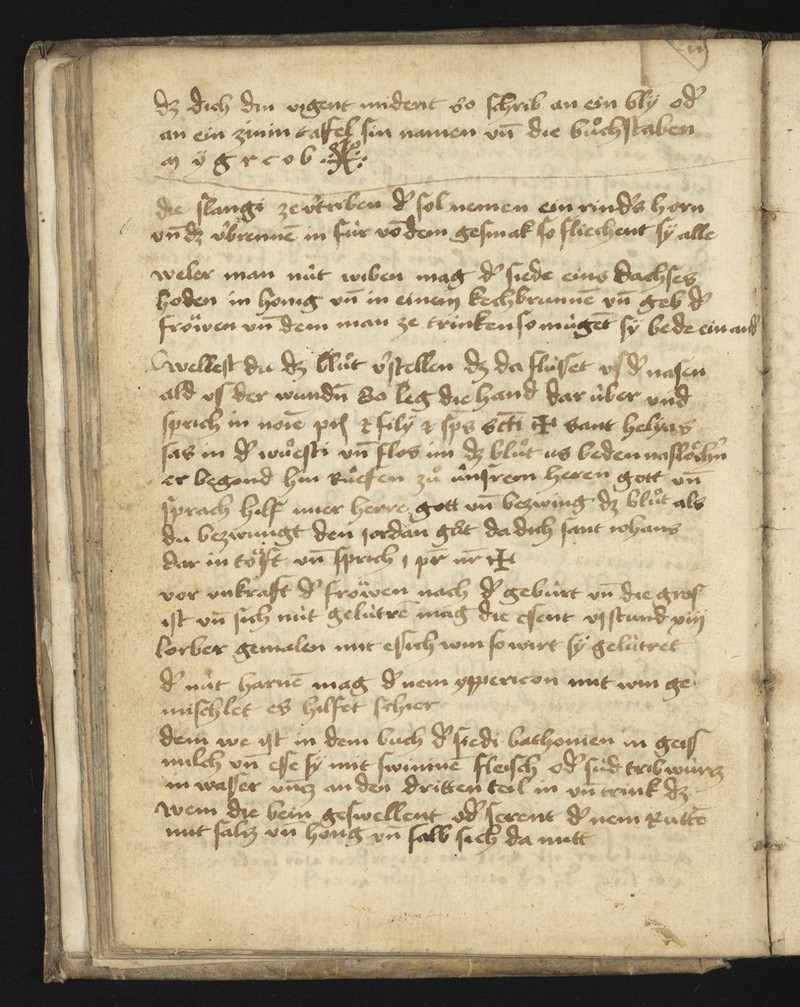 dz dich din vigent mident so schrib an ein bly od̕
an ein zinin tafel sin namen vn̄ die bůchstaben
m y g r c o b
die slangi ze v̕triben d̕ sol nemen ein rind̕s horn
vn̄ dz v̕brennē in für vō dem gesmak so fliechent sy alle
weler man nüt wiben mag d̕ siede eins dachses
hoden in honig vn̄ in einem kechbrunnē vn̄ geb d̕
fröwen vn̄ dem man ze trinken so mügēt sy bede ein and̕
wellest du dz blůt v̕stellen dz da flüsset vs d̕ nasen
ald vs der wundn̄ So leg die hand dar über vnd
sprich in noīe pr̄s & filÿ & sp̄s sc̄ti ✠ sant helyas
sas in d̕ wůsti vn̄ flos im dz blůt us beden naslöch̕n
er begond hin Růffen zů ünsrem heren gott vn̄
sprach hilf mier herre gott vn̄ bezwing dz blůt als
du bezwungt den iordan gůt da dich sant iohans
dar in töfft vn̄ sprich j pr̄ nr̄ ✠
vor vnkrafft d̕ fröwen nach d̕ gebürt vn̄ die gros
ist vn̄ sich nüt gelütrē mag die essent vj stund viij
lorber gemalen mit essich win so wirt sy gelütret
d̕ nüt harnē mag d̕ nem yppericon mit win ge
mischlet es hilfet schier
dem we ist in dem buch d̕ siedi bathonien in geiss
milch vn̄ esse sy mit swininē fleisch od̕ süd tribwürtz
in wasser vntz an den dritten teil in vn̄ trink dz
wem die bein geswellent od̕ serent d̕ nem Ruttē
mit saltz vn̄ hong vn̄ salb sich da mitt